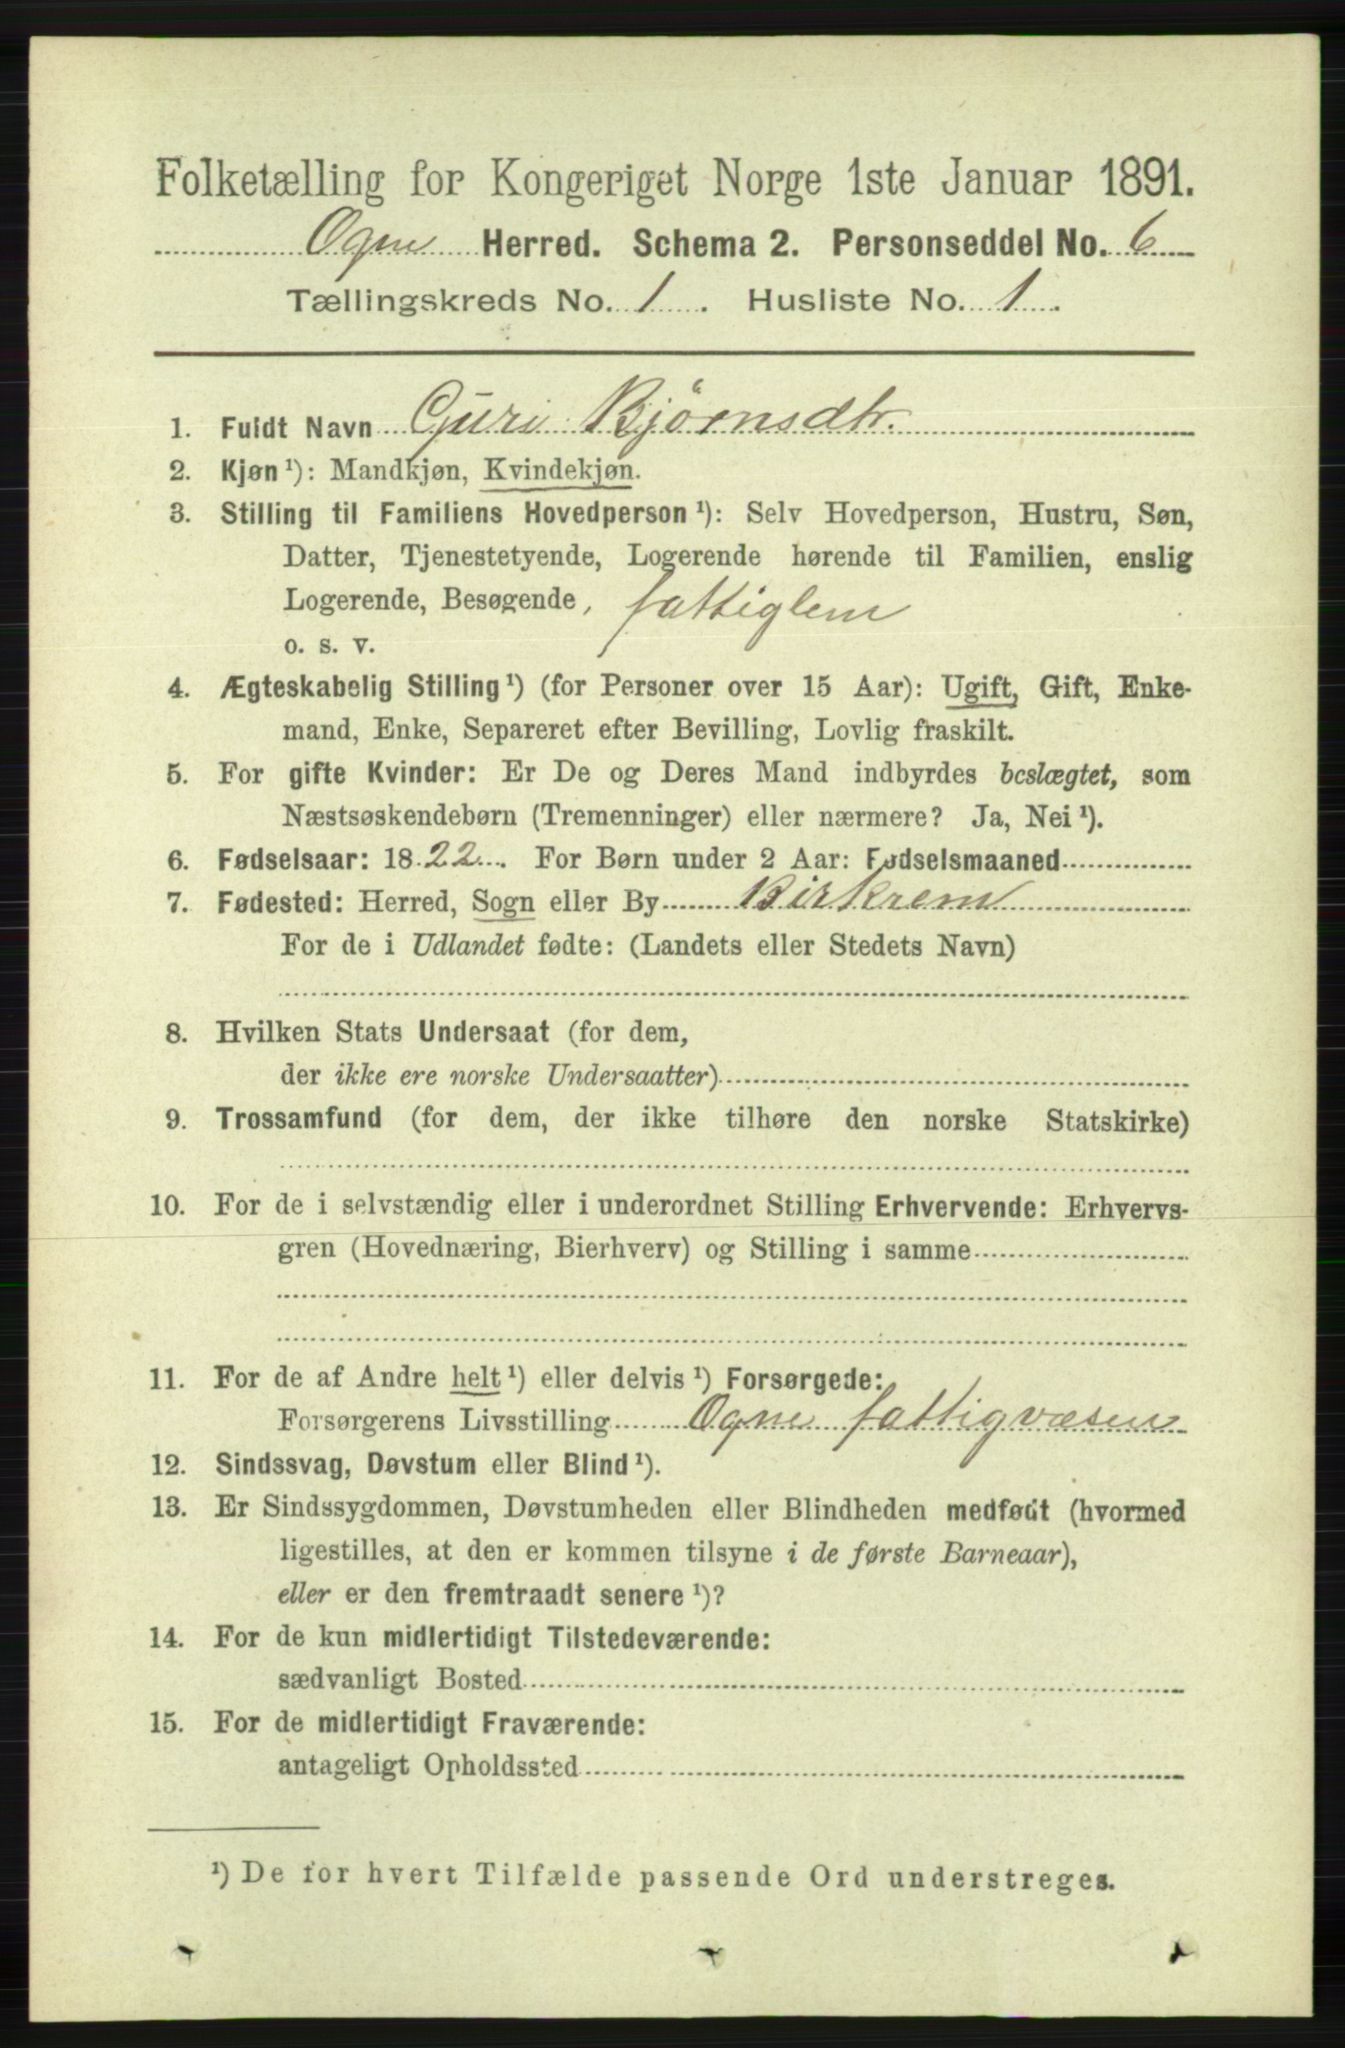 Folketælling for Kongeriget Norge 1ste Januar 1891.
Ogne Herred. Schema 2. Personseddel No. 6
Tællingskreds No. 1. Husliste No. 1.
1. Fuldt Navn Guri Bjørnsdtr.
2. Kjøn ¹): Mandkjøn, Kvindekjøn.
3. Stilling til Familiens Hovedperson ¹): Selv Hovedperson, Hustru, Søn,
Datter, Tjenestetyende, Logerende hørende til Familien, enslig
Logerende, Besøgende, fattiglem
o. s. v.
4. Ægteskabelig Stilling ¹) (for Personer over 15 Aar): Ugift, Gift, Enke-
mand, Enke, Separeret efter Bevilling, Lovlig fraskilt.
5. For gifte Kvinder: Er De og Deres Mand indbyrdes beslægtet, som
Næstsøskendebørn (Tremenninger) eller nærmere? Ja, Nei ¹).
6. Fødselsaar: 1822. For Børn under 2 Aar: Fødselsmaaned
7. Fødested: Herred, Sogn eller By Birkrem
For de i Udlandet fødte: (Landets eller Stedets Navn)
8. Hvilken Stats Undersaat (for dem,
der ikke ere norske Undersaatter)
9. Trossamfund (for dem, der ikke tilhøre den norske Statskirke)
10. For de i selvstændig eller i underordnet Stilling Erhvervende: Erhvervs-
gren (Hovednæring, Bierhverv) og Stilling i samme
11. For de af Andre helt ¹) eller delvis ¹) Forsørgede:
Forsørgerens Livsstilling Ogne fattigvæsen
12. Sindssvag, Døvstum eller Blind ¹).
13. Er Sindssygdommen, Døvstumheden eller Blindheden medfødt (hvormed
ligestilles, at den er kommen tilsyne i de første Barneaar),
eller er den fremtraadt senere ¹)?
14. For de kun midlertidigt Tilstedeværende:
sædvanligt Bosted
15. For de midlertidigt Fraværende:
antageligt Opholdssted
¹) De for hvert Tilfælde passende Ord understreges.